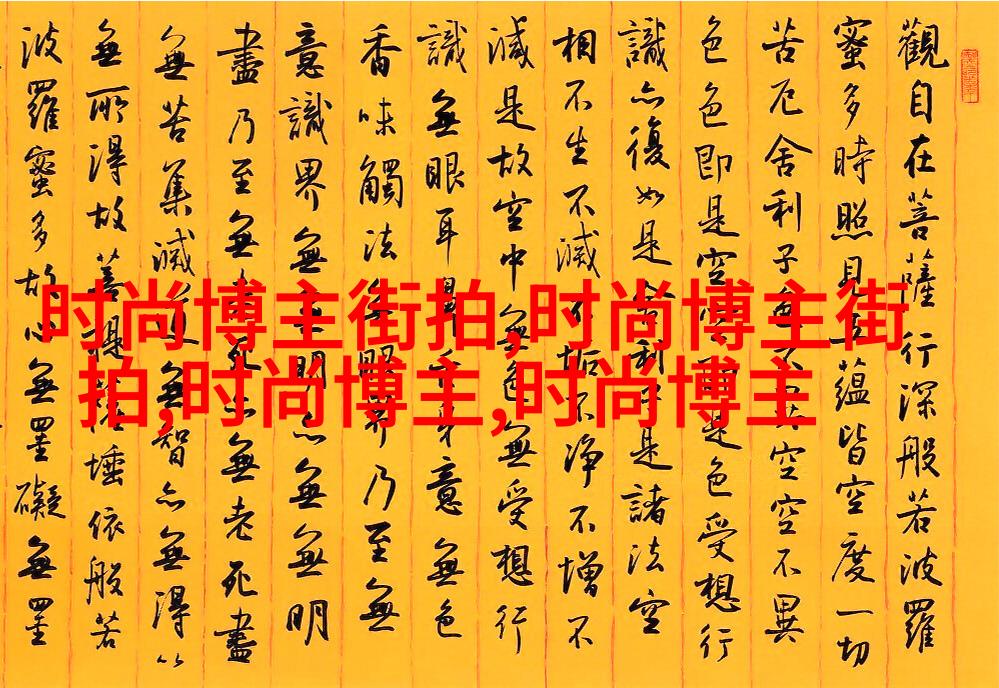 觀自在菩薩行深般若波羅
蜜多時照見五蘊皆空度一切
苦厄舍利子色不異空空不異
色色即是空空即是色受想行
識亦復如是舍利子是諸法空
相不生不滅不垢不淨不增不
減是故空中無色無受想行
識無眼耳鼻舌身意無色
香味觸法無眼界乃至無
意識界無無明亦無無明
盡乃至無老死亦無老死盡
無苦集滅道無智亦無得以
無所得故菩提薩埵依般若
波羅蜜多故心無罣礙無罣
时尚博主街拍,时尚博主街
拍,时尚博主,时尚博主